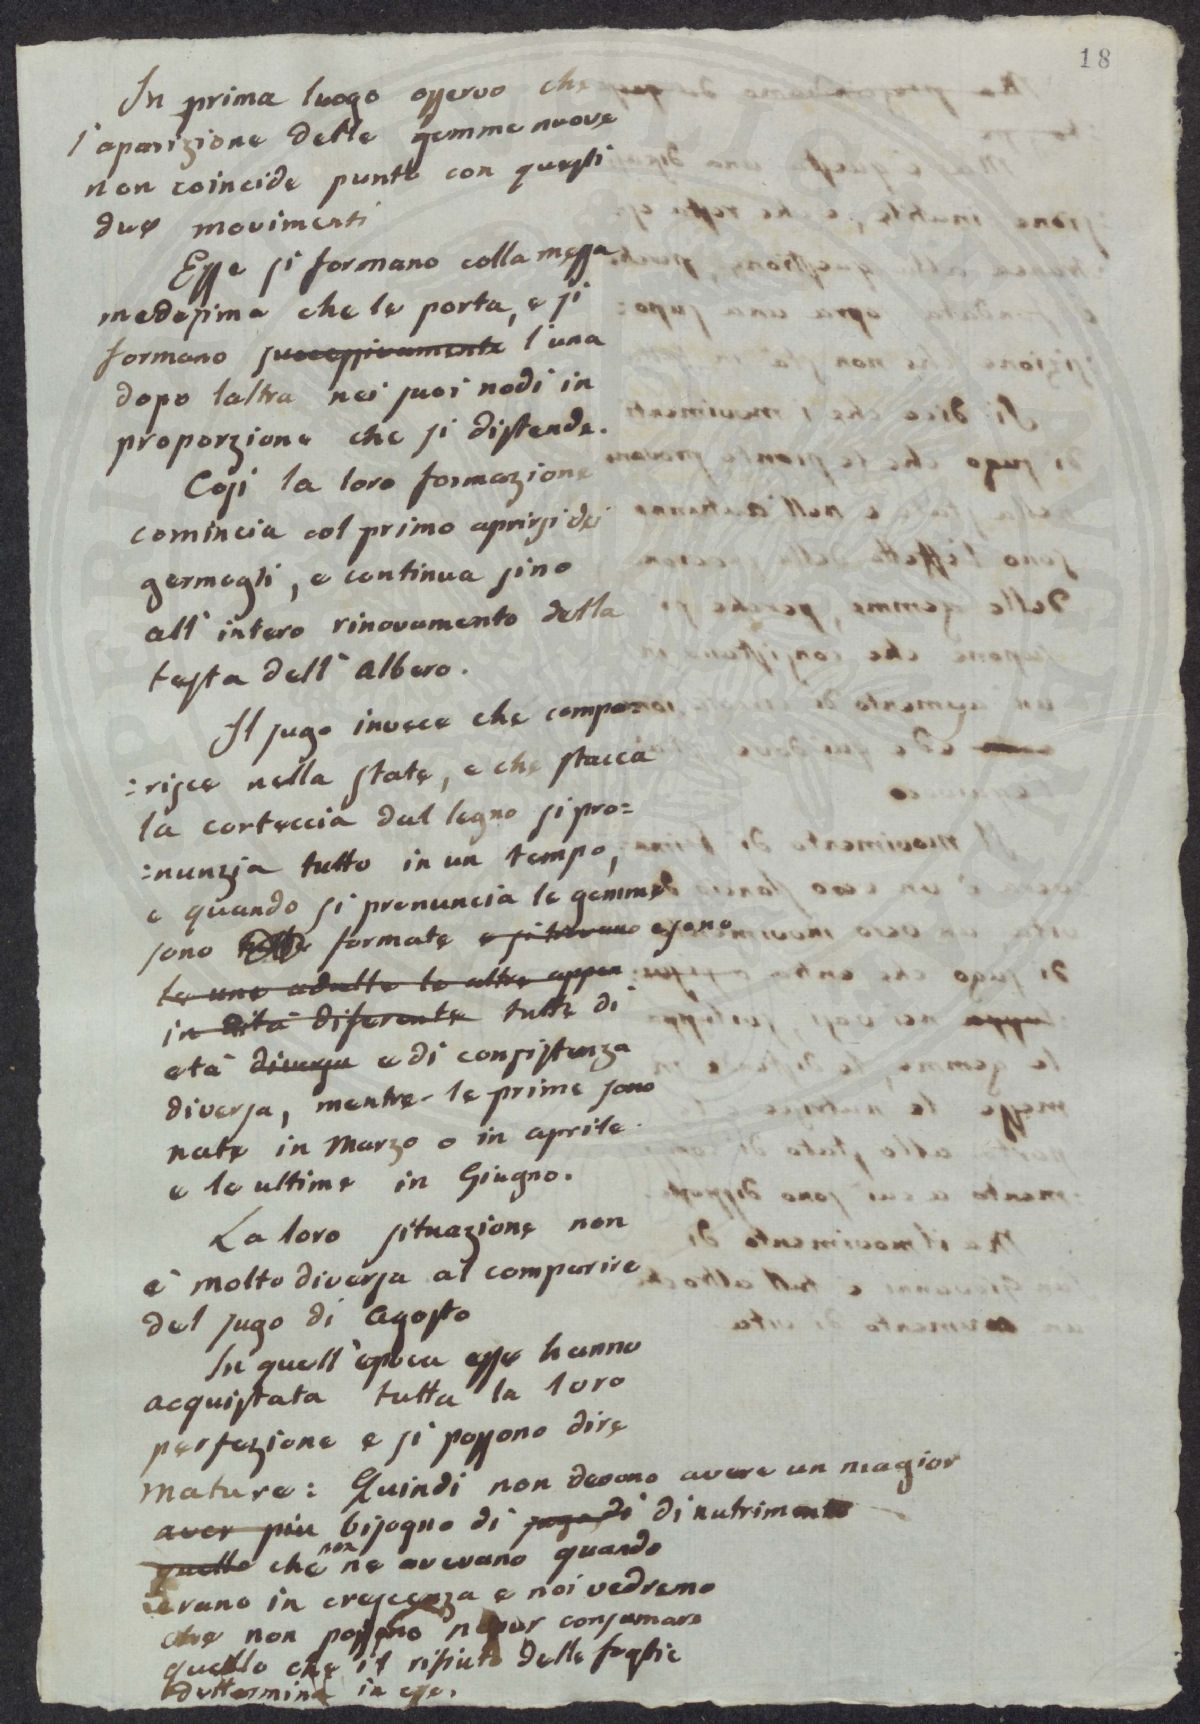 18
In prima luogo osservo che
l'aparizione delle gemme nuove
non coincide punto con questi
due movimenti
Esse si formano colla messa
medesima che le porta, e si
formano successivamente l'una
dopo laltra nei suoi nodi in
proporzione che si distende.
Cosi la loro formazione
comincia col primo aprirsi dei
germogli, e continua sino
all'intero rinovamento della
testa dell'Albero.
Il sugo invece che compa=
:risce nella state, e che stacca
la corteccia dal legno si pro=
:nunzia tutto in un tempo,
e quando si pronuncia le gemme
sono formate e si trovano e sono
le une adulte le altre appen
in ditá diferente tutte di
etá diversa e di consistenza
diversa, mentre le prime sono
nate in Marzo o in aprile
e le ultime in Giugno.
La loro situazione non
é molto diversa al comparire
del sugo di Agosto
In quell'epoca esse hanno
acquistata tutta la loro
perfezione e si possono dire
mature: Quindi non devono avere un magior
aver piu bisogno di sugo di di nutrimento
quello che non ne avevano quando
erano in crescenza e noi vedremo
che non possono nepur consumare
quello che il rifiuto delle foglie
dettermina in esse.